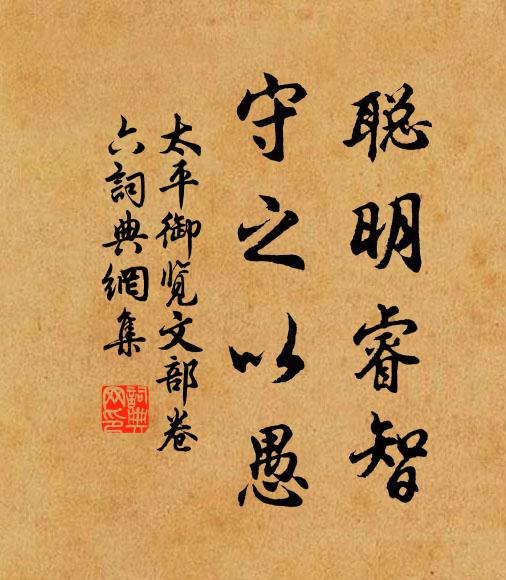 聪明睿智
守之以愚
太平御览文部卷
六詞典網集
詞典网印